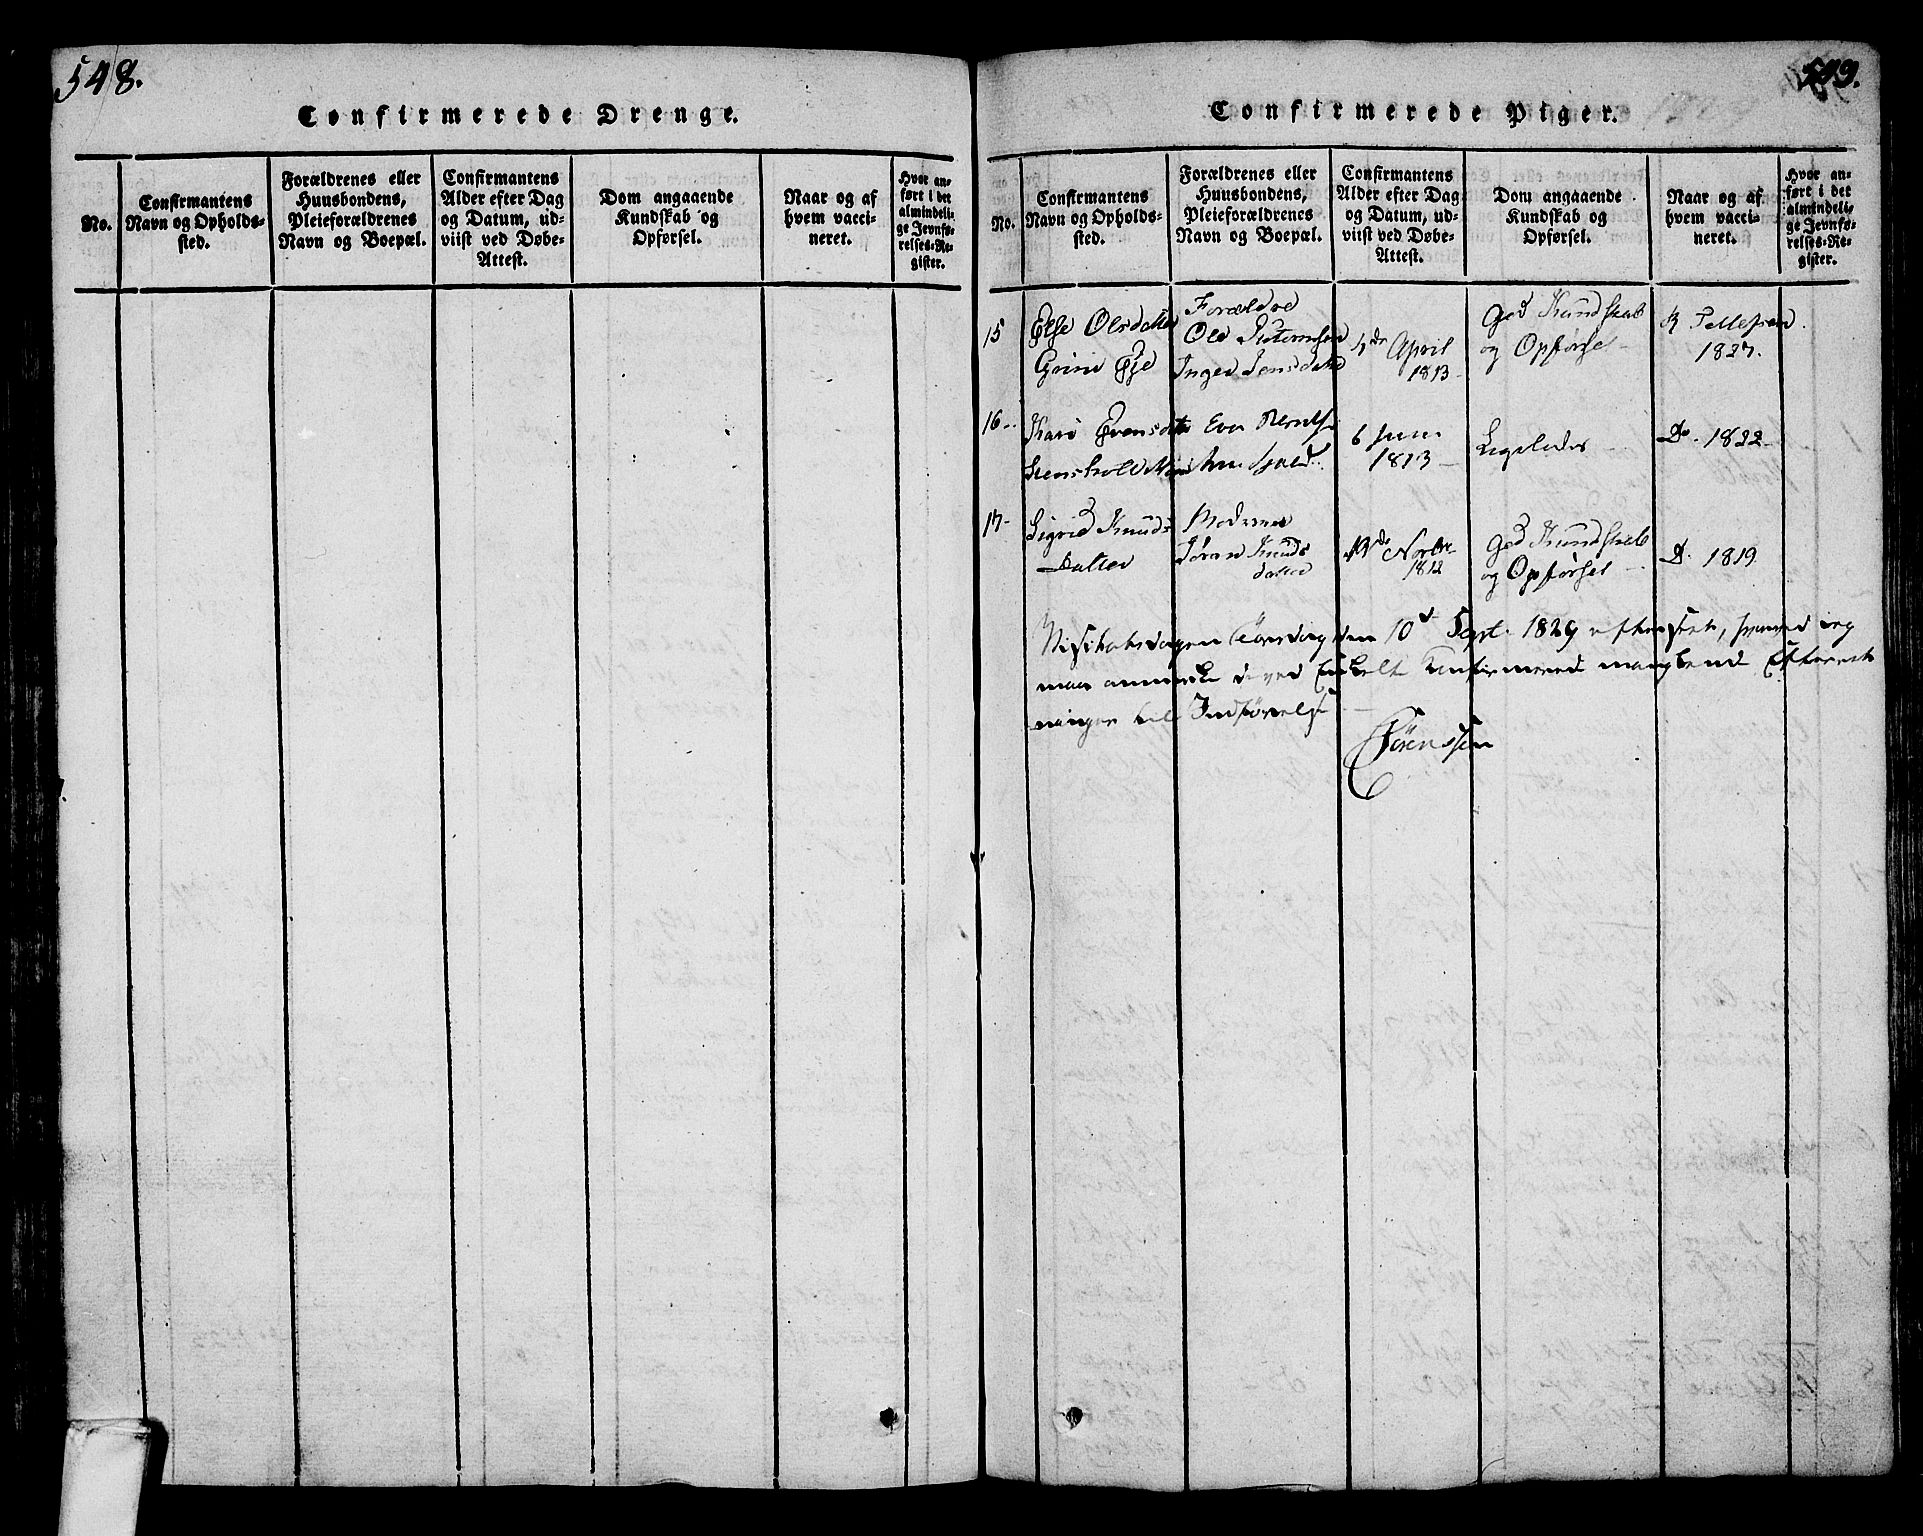 548.
Confirmerede Drenge.
No.
Confirmantens
Navn og Opholds-
sted.
Forældrenes eller
Huusbondens,
Pleieforældrenes
Navn og Boepæl.
Confirmantens
Alder efter Dag
og Datum, ud-
viist ved Døbe-
Attest.
Dom angaaende
Kundskab og
Opførsel.
Naar og af
hvem vacci-
neret.
Hvor an-
ført i det
almindeli-
ge Jevnfø-
relses-Re-
gister.
549.
Confirmerede Piger.
No.
Confirmantens
Navn og Opholds-
sted.
Forældrenes eller
Huusbondens,
Pleieforældrenes
Navn og Boepæl.
Confirmantens
Alder efter Dag
og Datum, ud-
viist ved Døbe-
Attest.
Dom angaaende
Kundskab og
Opførsel.
Naar og af
hvem vacci-
neret.
Hvor an-
ført i det
almindeli-
ge Jevnfø-
relses-Re-
gister.
15
Else Olsdatter
Grini Eje
Forældre
Ole
Inger Jensdatter
April
1813
God Kundskab
og Opførse
Pellesen
1827.
16
Kari Evensdatter
Even
6 Juni
1813
Ligeledes
Do. 1822
17
Sigrid Knuds
Datter
Moderen
Jøran Knuds
datter
Novbr
1812
God Kundskab
og Opførsel
D. 1819
Visitatsdagen Torsdag den 10d Sept. 1829 efterseet, hvorved jeg
maa anmerke ved Enkelt Confirmerede manglende Efterret-
ninger til Indførelse
Sørenssen